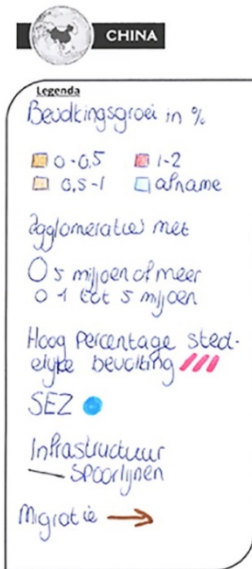 CHINA
Legenda
Bevolkingsgroei in %
0-0,5 1-2
0,5-1 afname
agglomeraties met
5 miljoen of meer
0 1 tot 5 mljoen
Hoog percentage sted-
elijke bevolking
SEZ
Infrastructuur
spoorlijnen
Migratie